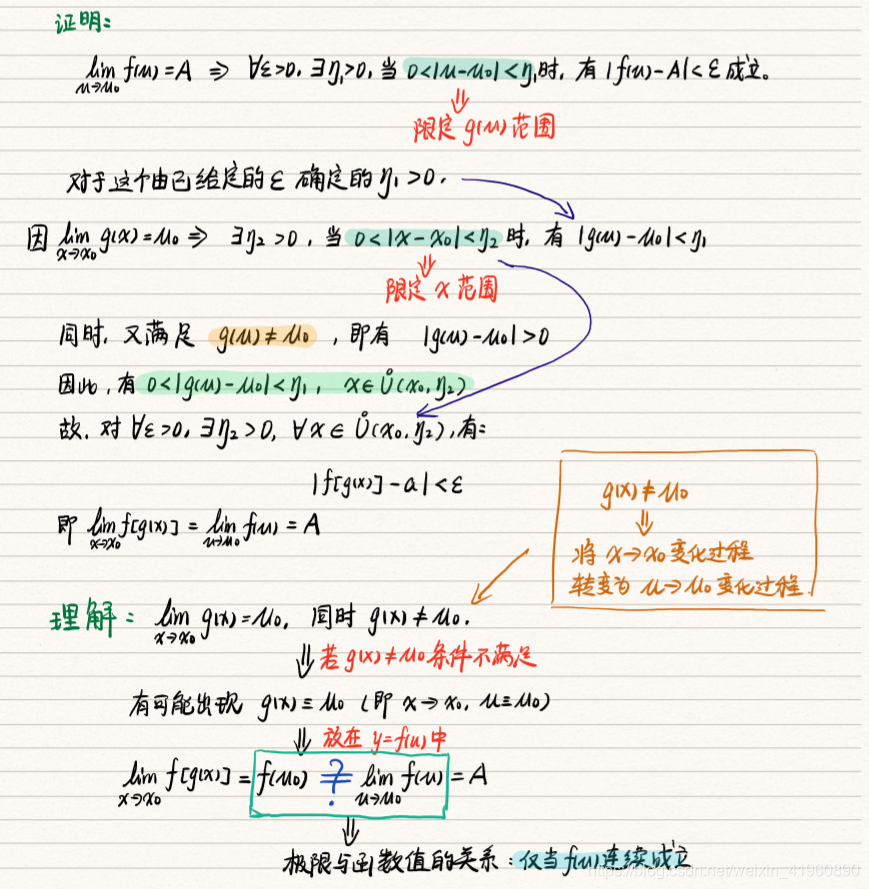 证明:
lim f(u)=A ⇒ ∀ε>0, ∃η₁>0, 当 0<|u-u₀|<η₁时, 有 |f(u)-A|<ε成立。
u→u₀
⇓
限定 g(u) 范围
对于这个由已给定的 ε 确定的 η₁>0.
因 lim g(x)=u₀ ⇒ ∃η₂>0, 当 0<|x-x₀|<η₂ 时, 有 |g(u)-u₀|<η₁
x→x₀
⇓
限定 x 范围
同时, 又满足 g(u)≠u₀, 即有 |g(u)-u₀|>0
因此, 有 0<|g(u)-u₀|<η₁, x∈Ů(x₀,η₂)
故, 对 ∀ε>0, ∃η₂>0, ∀x∈Ů(x₀,η₂), 有:
|f[g(x)]-a|<ε
即 lim f[g(x)] = lim f(u) = A
x→x₀ u→u₀
g(x)≠u₀
⇓
将 x→x₀ 变化过程
转变为 u→u₀ 变化过程.
理解: lim g(x)=u₀, 同时 g(x)≠u₀.
x→x₀
⇓ 若g(x)≠u₀条件不满足
有可能出现 g(x)≡u₀ (即 x→x₀, u≡u₀)
⇓ 放在 y=f(u)中
lim f[g(x)] = f(u₀) ≟ lim f(u) = A
x→x₀ u→u₀
⇓
极限与函数值的关系: 仅当f(u)连续成立
https://blog.csdn.net/weixin_41960890